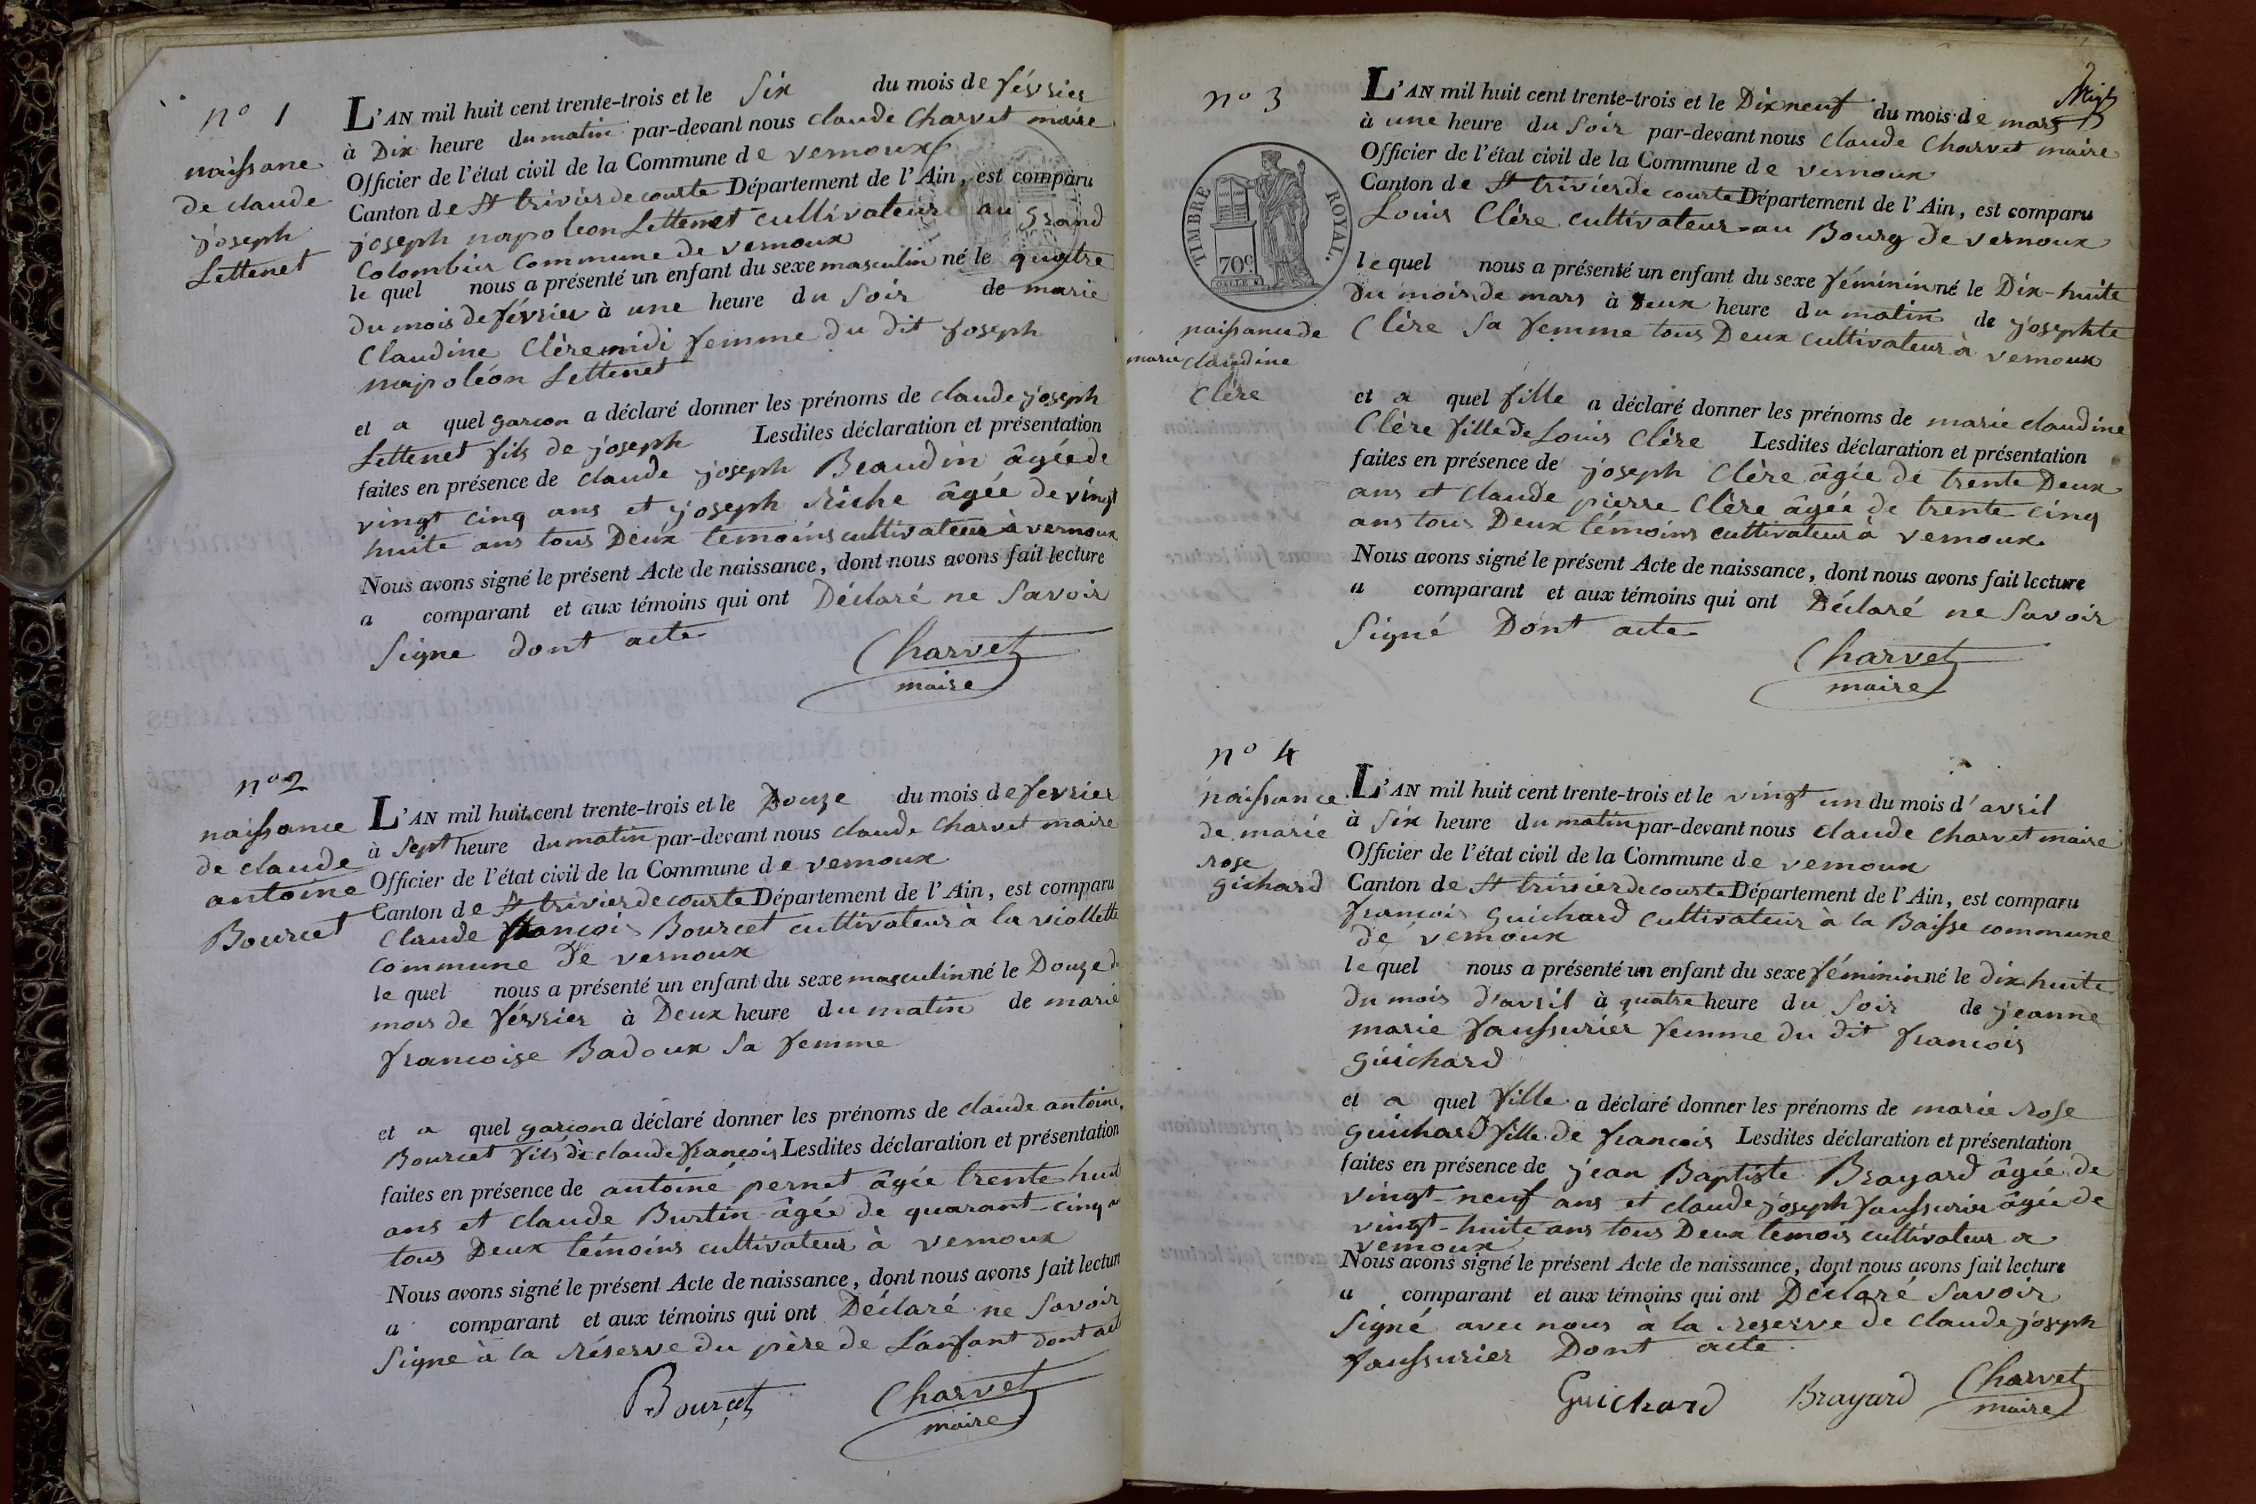 n° 1
naissane
de claude
joseph
Lettenet
L'AN mil huit cent trente-trois et le Six du mois de février
à Dix heure du matin par-devant nous claude Charvet maire
Officier de l'état civil de la Commune de vernoux
Canton de St trivier de courte Département de l'Ain, est comparu
joseph napoléon Lettenet cultivateur au grand
Colombier Commune de vernoux
le quel nous a présenté un enfant du sexe masculin né le quatre
du mois de février à une heure du Soir de marie
Claudine Clèremidi femme du dit joseph
napoléon Lettenet
et a quel garcon a déclaré donner les prénoms de claude joseph
Lettenet fils de joseph Lesdites déclaration et présentation
faites en présence de claude joseph Beaudin âgée de
vingt cinq ans et joseph Riche âgée de vingt
huite ans tous Deux témoins cultivateur à vernoux
Nous avons signé le présent Acte de naissance, dont nous avons fait lecture
a comparant et aux témoins qui ont Déclaré ne Savoir
Signe dont acte
Charvet
maire
n° 2
naissance
de claude
antoine
Bourcet
L'AN mil huit cent trente-trois et le Douze du mois de fevrier
à Sept heure du matin par-devant nous claude Charvet maire
Officier de l'état civil de la Commune de vernoux
Canton de St trivier de courte Département de l'Ain, est comparu
Claude françois Bourcet cultivateur à la viollette
commune De vernoux
le quel nous a présenté un enfant du sexe masculin né le Douze du
mois de février à Deux heure du matin de marie
francoise Badoux Sa femme
et a quel garcon a déclaré donner les prénoms de claude antoine
Bourcet fils de claude françois Lesdites déclaration et présentation
faites en présence de antoine pernet âgée trente huit
ans et claude Burtin âgée de quarant-cinq an
tous Deux témoins cultivateur à vernoux
Nous avons signé le présent Acte de naissance, dont nous avons fait lecture
a comparant et aux témoins qui ont Déclaré ne Savoir
Signe à la réserve du père de L'anfant dont act
Bourcet
Charvet
maire
n° 3
TIMBRE ROYAL.
70c
naissance de
marie claudine
Clère
L'AN mil huit cent trente-trois et le Dixneuf du mois de mars
à une heure du Soir par-devant nous claude Charvet maire
Officier de l'état civil de la Commune de vernoux
Canton de St trivier de courte Département de l'Ain, est comparu
Louis Clère cultivateur au Bourg de vernoux
le quel nous a présenté un enfant du sexe féminin né le Dix-huite
Du mois de mars à Deux heure du matin de josephte
Clère Sa femme tous Deux cultivateur à vernoux
et a quel fille a déclaré donner les prénoms de marie claudine
Clère fille de Louis Clère Lesdites déclaration et présentation
faites en présence de joseph Clère âgée de trente Deux
ans et claude pierre Clère âgée de trente cinq
ans tous Deux témoins cultivateur à vernoux
Nous avons signé le présent Acte de naissance, dont nous avons fait lecture
a comparant et aux témoins qui ont Déclaré ne Savoir
Signé Dont acte
Charvet
maire
n° 4
naissance
de marie
rose
gichard
L'AN mil huit cent trente-trois et le vingt un du mois d'avril
à Six heure du matin par-devant nous claude Charvet maire
Officier de l'état civil de la Commune de vernoux
Canton de St trivier de courte Département de l'Ain, est comparu
francois Guichard cultivateur à la Baisse commune
de vernoux
le quel nous a présenté un enfant du sexe féminin né le dix huite
Du mois d'avril à quatre heure du Soir de jeanne
marie faussurier femme du dit francois
guichard
et a quel fille a déclaré donner les prénoms de marie rose
guichard fille de francois Lesdites déclaration et présentation
faites en présence de jean Baptiste Brayard âgée de
vingt-neuf ans et claude joseph faussurier âgée de
vingt-huite ans tous Deux temois cultivateur a
vernoux
Nous avons signé le présent Acte de naissance, dont nous avons fait lecture
a comparant et aux témoins qui ont Déclaré Savoir
Signé avec nous à la reserve de claude joseph
faussurier Dont acte
Guichard
Brayard
Charvet
maire